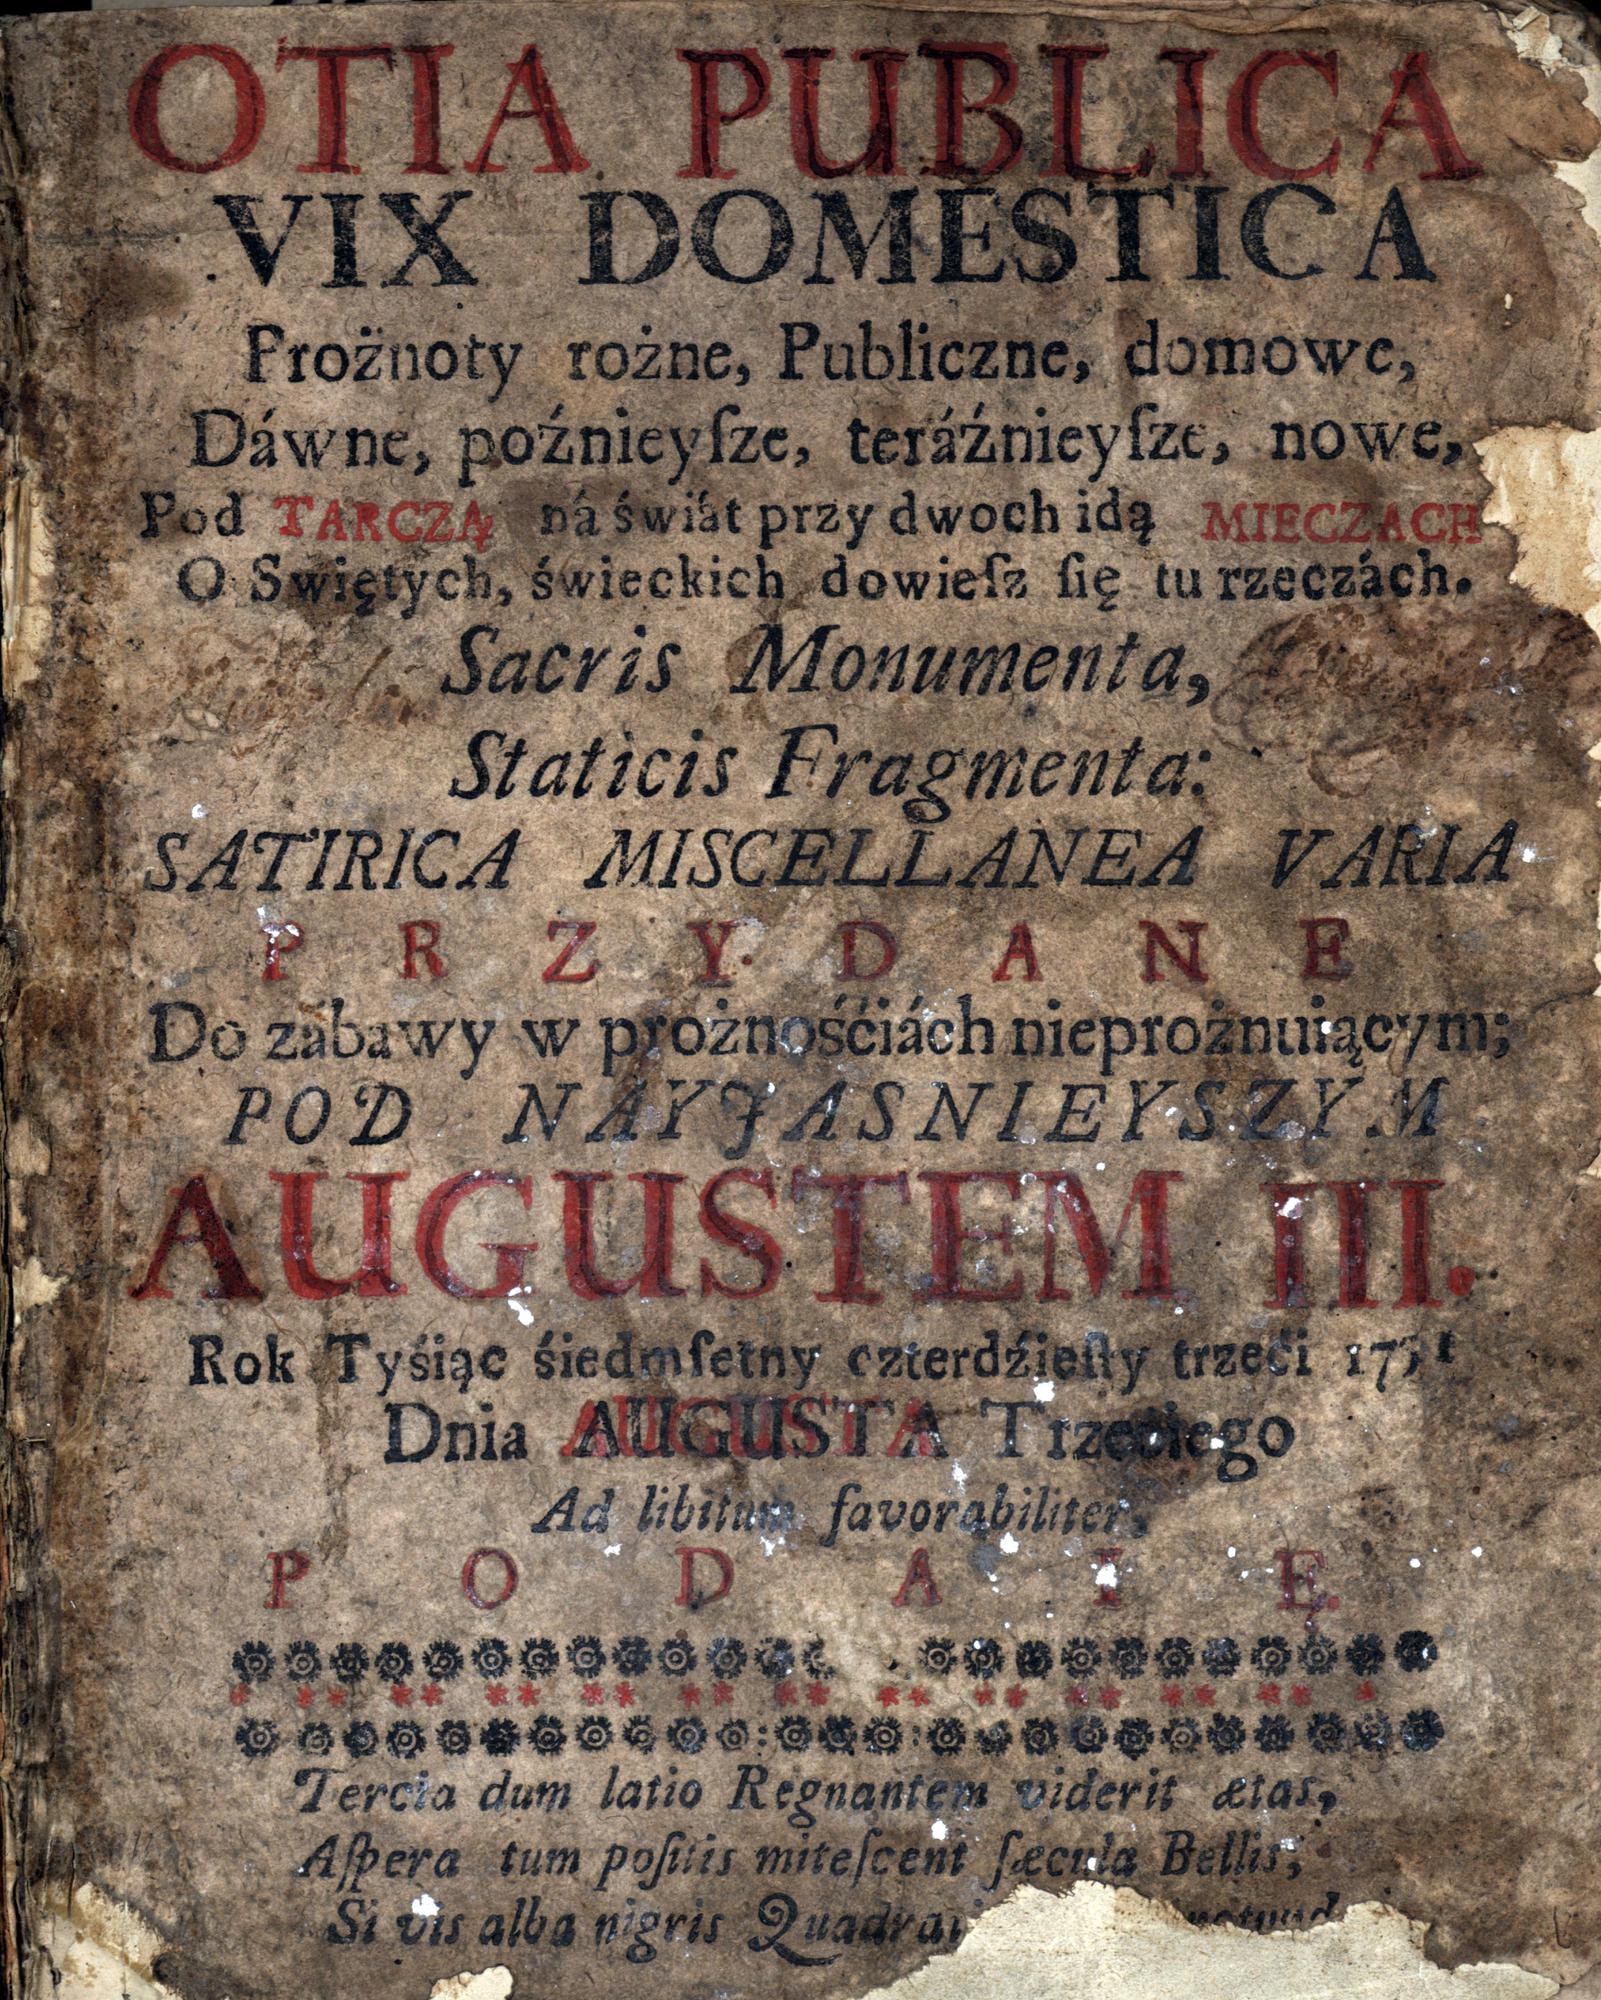 OTIA PUBLICA
VIX DOMESTICA
Prożnoty rożne, Publiczne, domowe,
Dáwne, poźnieyſze, teráźnieyſze, nowe,
Pod TARCZĄ ná świát przy dwoch idą MIECZACH
O Swiętych, świeckich dowieſz ſię tu rzeczách.
Sacris Monumenta,
Staticis Fragmenta:
SATIRICA MISCELLANEA VARIA
PRZYDANE
Do zábawy w prożnośćiách nieprożnuiącym;
POD NAYJASNIEYSZYM
AUGUSTEM III.
Rok Tyśiąc śiedmſetny czterdźieſty trzeći
Dnia AUGUSTA Trzeciego
Ad libitum favorabiliter,
PODAIĘ.
Tercia dum latio Regnantem viderit ætas,
Aſpera tum poſitis miteſcent ſæcula Bellis,
Si vis alba nigris